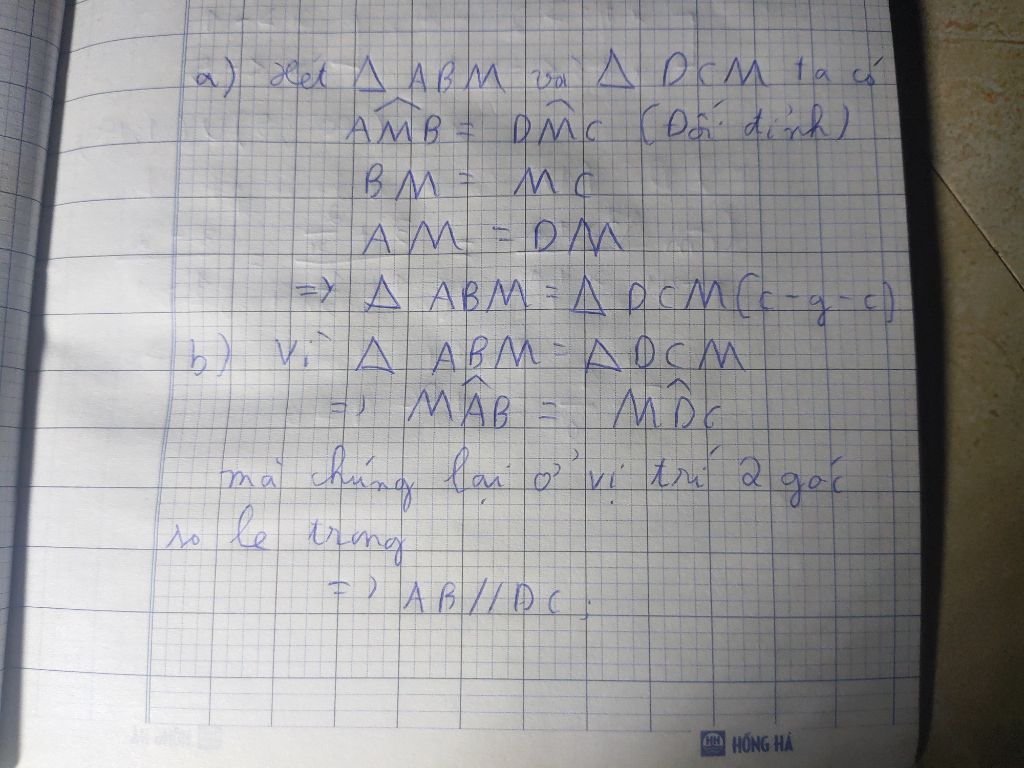 a) Xét Δ ABM và Δ DCM ta có
AM̂B = DM̂C (Đối đỉnh)
BM = MC
AM = DM
=> Δ ABM = Δ DCM (c-g-c)
b) Vì Δ ABM = Δ DCM
=> MÂB = MD̂C
mà chúng lại ở vị trí 2 góc
so le trong
=> AB // DC;
HH HỒNG HÀ
HỒNG HÀ